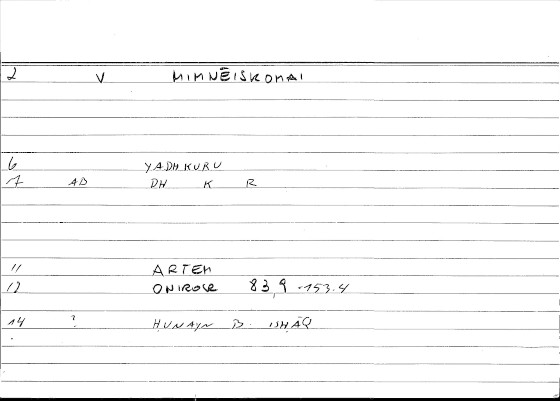 2 V MIMNĒISKOMAI
6 YADHKURU
7 AD DH K R
11 ARTEM
12 ONIROCR 83,9 -153.4
14 ? ḤUNAYN B. ISḤĀQ